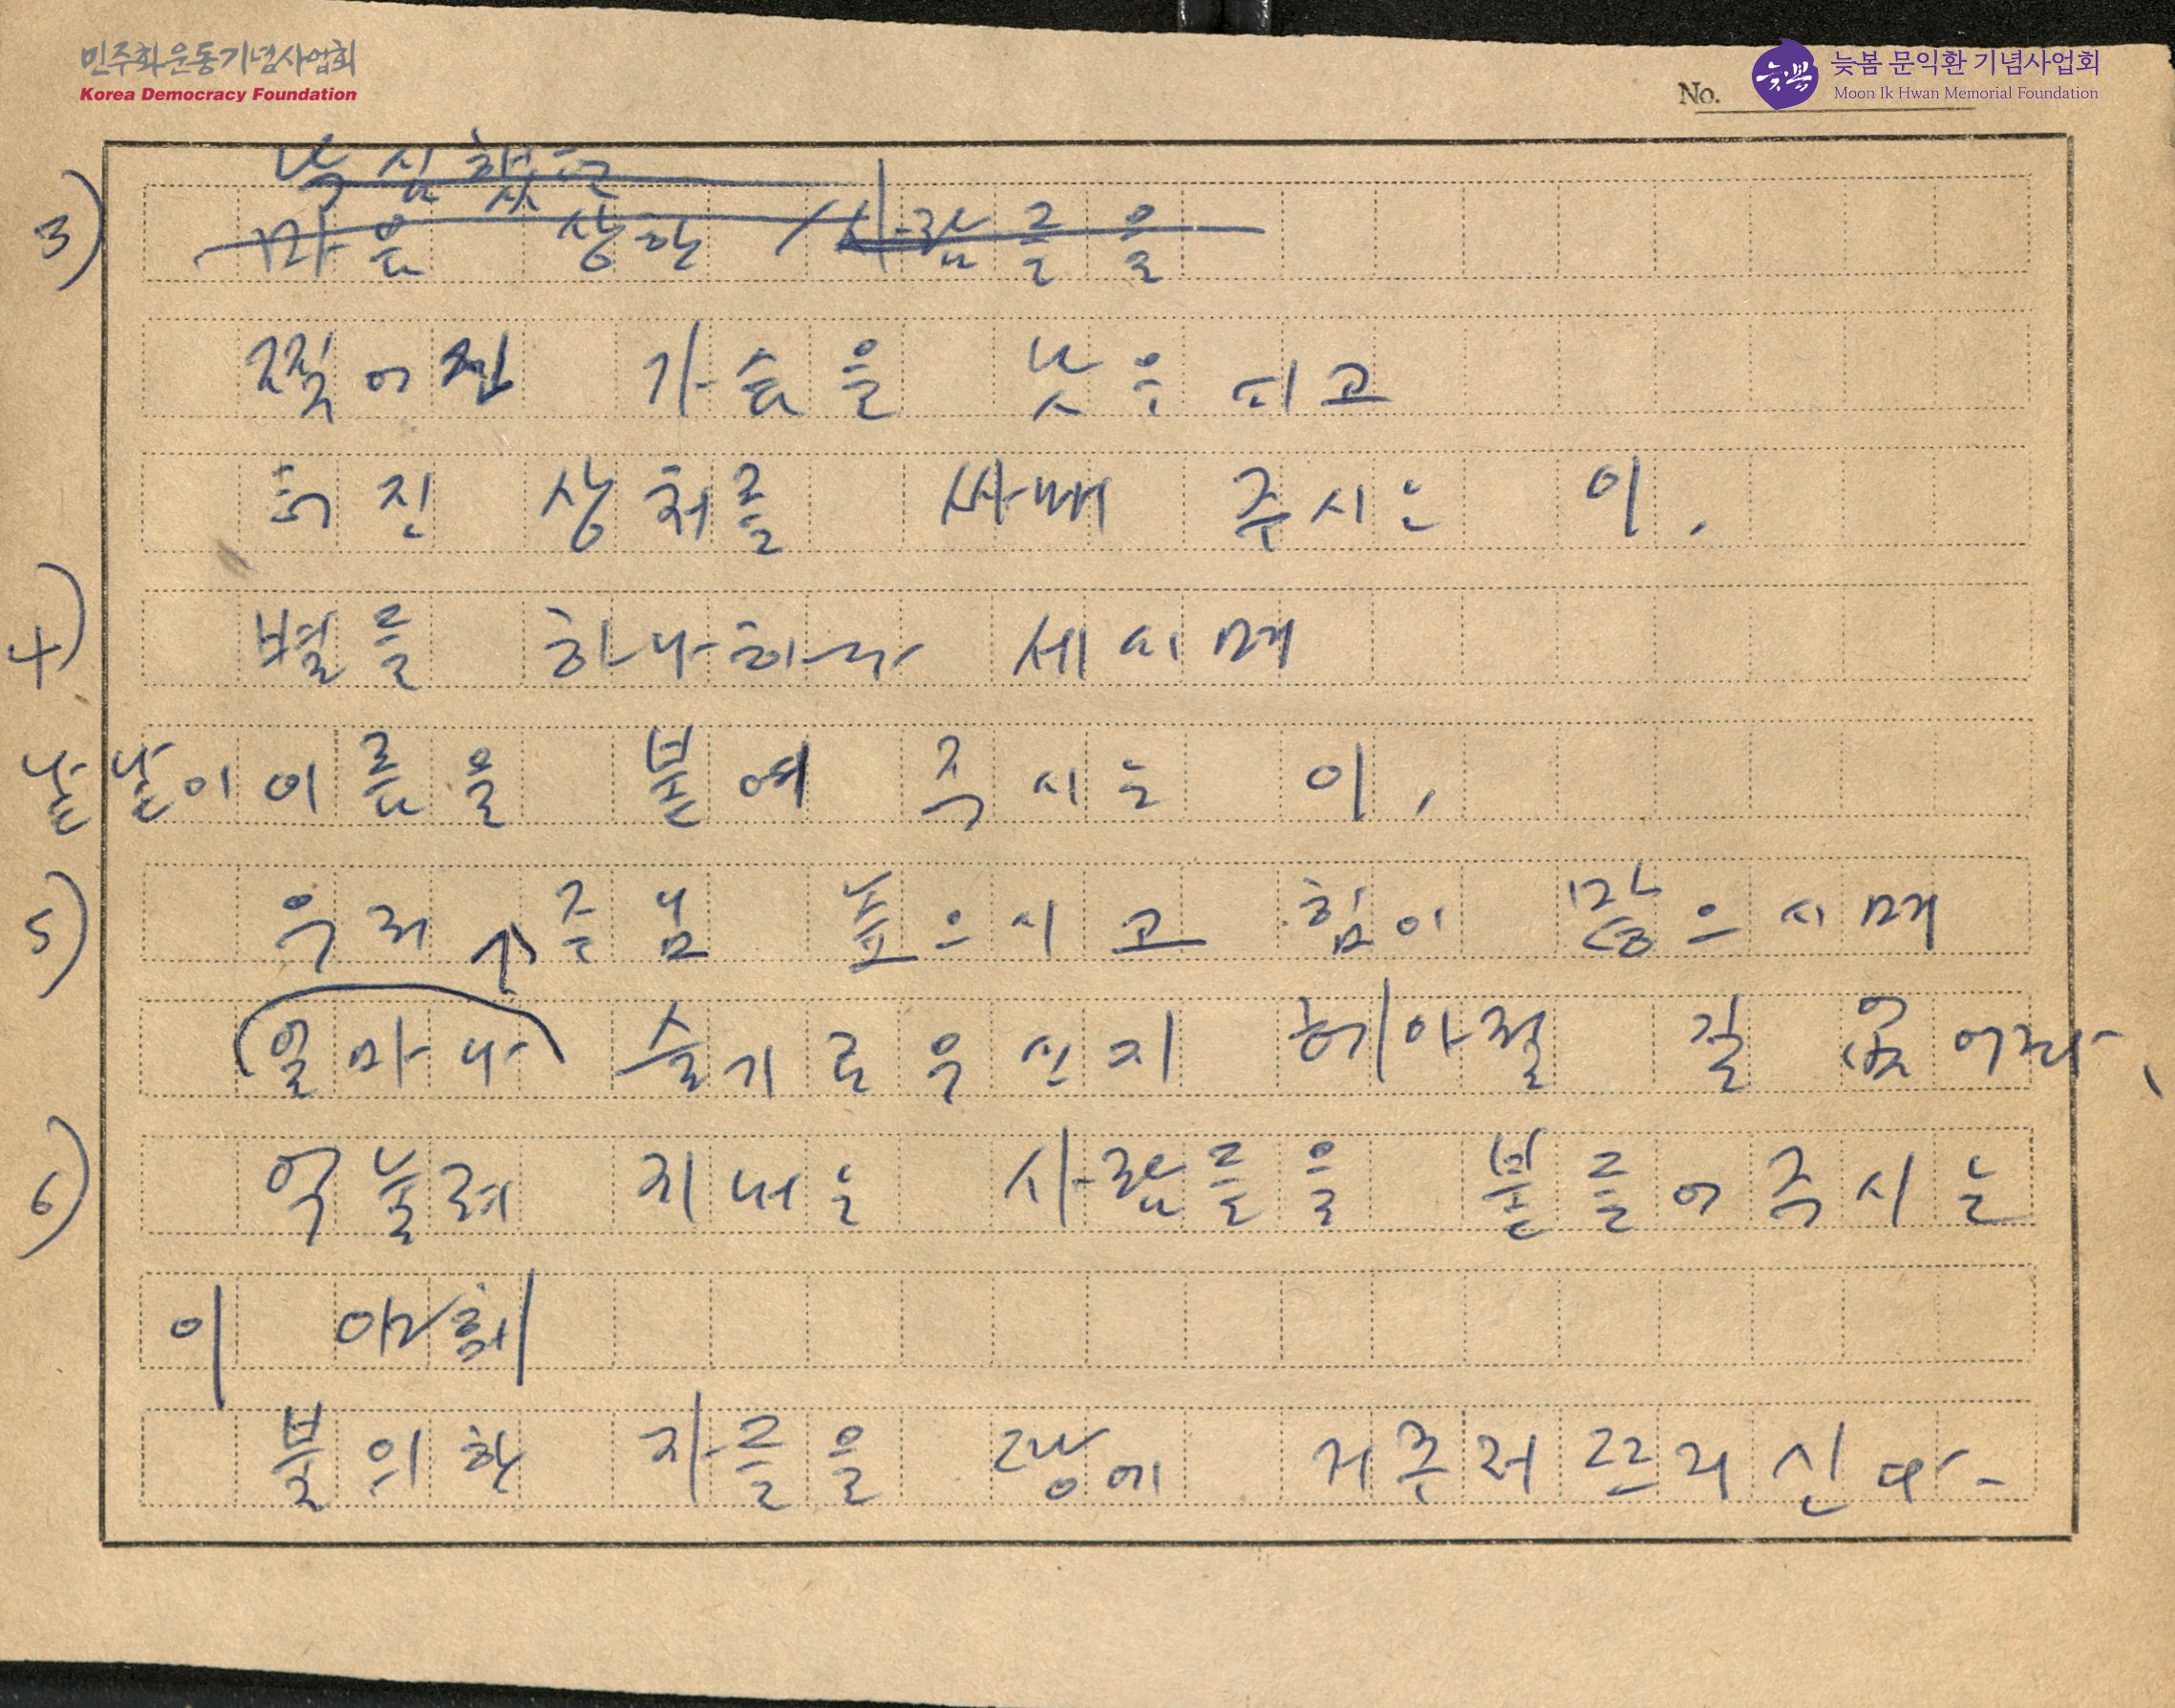 민주화운동기념사업회
Korea Democracy Foundation
늦봄
늦봄 문익환 기념사업회
Moon Ik Hwan Memorial Foundation
No.
낙심했던
3) 마음 상한 사람들을
찢어진 가슴을 낫우시고
터진 상처를 싸매 주시는 이,
4) 별들 하나하나 세시며
낱낱이 이름을 붙여 주시는 이,
5) 우리 주님 높으시고 힘이 많으시며
얼마나 슬기로우신지 헤아릴 길 없어라,
6) 억눌려 지내는 사람들을 붙들어주시는
이 야훼
불의한 자들을 땅에 거꾸러뜨리신다.